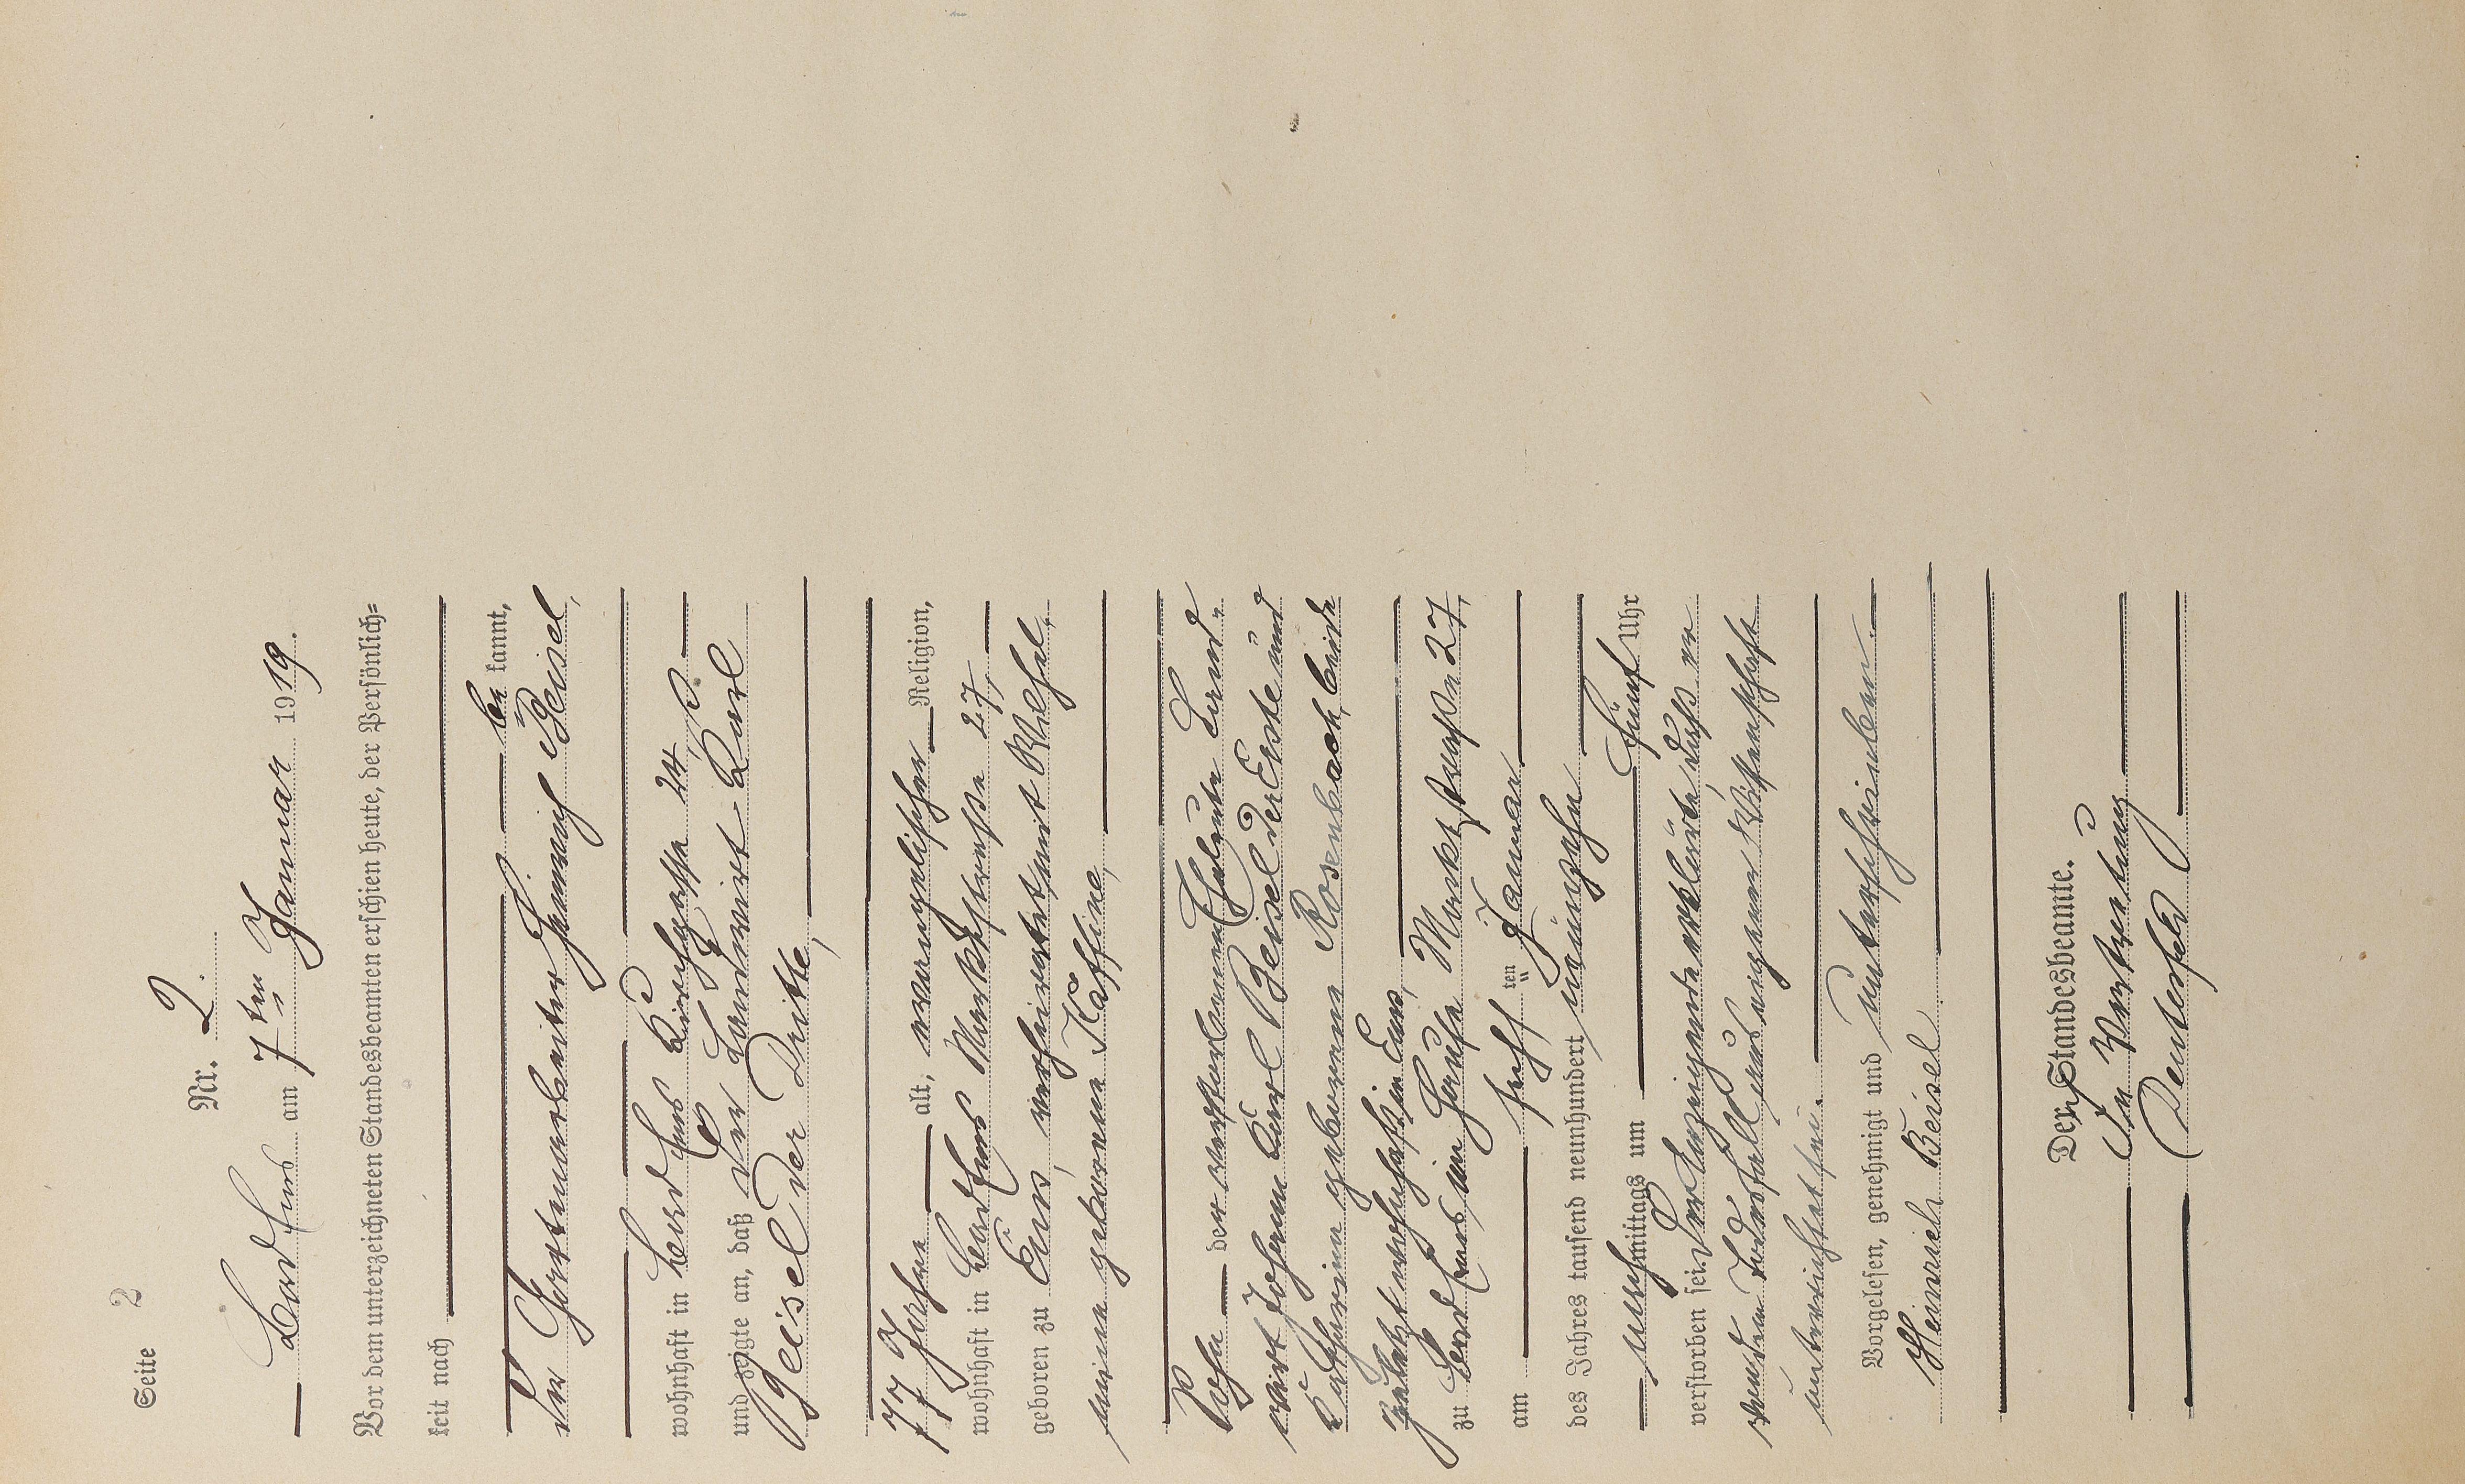 Seite 2
Nr. 2.
Bad Ems am 7ten Januar 1919.
Vor dem unterzeichneten Standesbeamten erschien heute, der Persönlich-
keit nach
be kannt,
der Gartenarbeiter Heinrich Beisel,
wohnhaft in Bad Ems Kirchgasse 24,
und zeigte an, daß der Landwirt Karl
Beisel der Dritte,
77 Jahre alt, evangelischer Religion,
wohnhaft in Bad Ems Marktstrasse 27,
geboren zu Ems, verheiratet mit
mine geborene Kaffine,
Sohn der verstorbenen Eheleute Land-
wirt Johann Karl Beisel der Erste und
Katharina geborene Rosenbach, beide
zuletzt wohnhaft in Ems,
zu Bad Ems im Hause Marktstraße 27,
am sechsten Januar
des Jahres tausend neunhundert neunzehn
nachmittags um fünf Uhr
verstorben sei. Der Anzeigende erklärte, daß er
von dem Todesfall aus eigener Wissenschaft
unterrichtet sei.
Vorgelesen, genehmigt und unterschrieben.
Heinrich Beisel
Der Standesbeamte.
In Vertretung